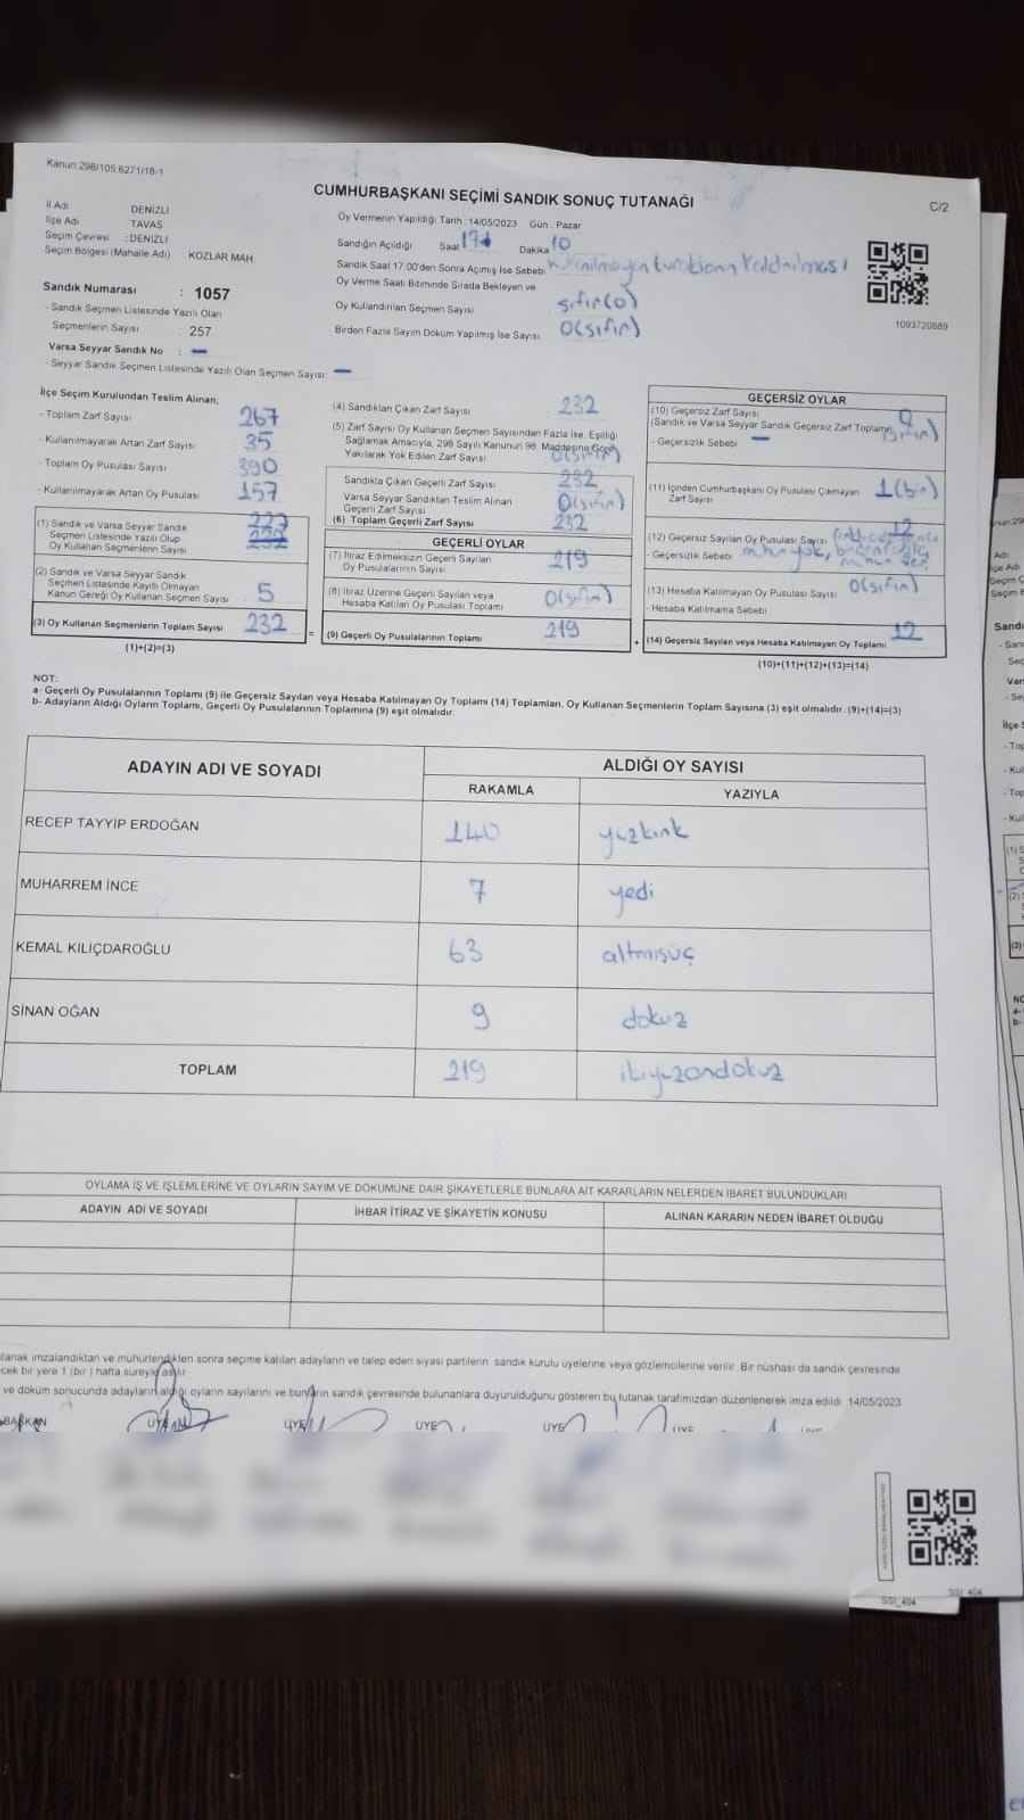 Kanun 298/105 6271/18-1
CUMHURBAŞKANI SEÇİMİ SANDIK SONUÇ TUTANAĞI
C/2
İl Adı DENİZLİ
İlçe Adı TAVAS
Seçim Çevresi : DENİZLİ
Seçim Bölgesi (Mahalle Adı) KOZLAR MAH
Sandık Numarası : 1057
- Sandık Seçmen Listesinde Yazılı Olan
Seçmenlerin Sayısı 257
Varsa Seyyar Sandık No : -
- Seyyar Sandık Seçmen Listesinde Yazılı Olan Seçmen Sayısı -
Oy Vermenin Yapıldığı Tarih : 14/05/2023 Gün : Pazar
Sandığın Açıldığı Saat 17 Dakika 10
Sandık Saat 17.00'den Sonra Açılmış İse Sebebi
Oy Verme Saati Bitiminde Sırada Bekleyen ve
Oy Kullandırılan Seçmen Sayısı sıfır(0)
Birden Fazla Sayım Döküm Yapılmış İse Sayısı 0(sıfır)
1093720889
İlçe Seçim Kurulundan Teslim Alınan;
- Toplam Zarf Sayısı 267
- Kullanılmayarak Artan Zarf Sayısı 35
- Toplam Oy Pusulası Sayısı 390
- Kullanılmayarak Artan Oy Pusulası 157
(1) Sandık ve Varsa Seyyar Sandık
Seçmen Listesinde Yazılı Olup
Oy Kullanan Seçmenlerin Sayısı 227
(2) Sandık ve Varsa Seyyar Sandık
Seçmen Listesinde Kayıtlı Olmayan
Kanun Gereği Oy Kullanan Seçmen Sayısı 5
(3) Oy Kullanan Seçmenlerin Toplam Sayısı 232
(1)+(2)=(3)
(4) Sandıktan Çıkan Zarf Sayısı 232
(5) Zarf Sayısı Oy Kullanan Seçmen Sayısından Fazla İse, Eşitliği
Sağlamak Amacıyla, 298 Sayılı Kanunun 98. Maddesine Göre
Yakılarak Yok Edilen Zarf Sayısı 0(sıfır)
Sandıkta Çıkan Geçerli Zarf Sayısı 232
Varsa Seyyar Sandıktan Teslim Alınan
Geçerli Zarf Sayısı 0(sıfır)
(6) Toplam Geçerli Zarf Sayısı 232
GEÇERLİ OYLAR
(7) İtiraz Edilmeksizin Geçerli Sayılan
Oy Pusulalarının Sayısı 219
(8) İtiraz Üzerine Geçerli Sayılan veya
Hesaba Katılan Oy Pusulası Toplamı 0(sıfır)
= (9) Geçerli Oy Pusulalarının Toplamı 219
GEÇERSİZ OYLAR
(10) Geçersiz Zarf Sayısı
(Sandık ve Varsa Seyyar Sandık Geçersiz Zarf Toplamı) 0 (sıfır)
- Geçersizlik Sebebi -
(11) İçinden Cumhurbaşkanı Oy Pusulası Çıkmayan
Zarf Sayısı 1(bir)
(12) Geçersiz Sayılan Oy Pusulası Sayısı 12
- Geçersizlik Sebebi
(13) Hesaba Katılmayan Oy Pusulası Sayısı 0(sıfır)
- Hesaba Katılmama Sebebi
+ (14) Geçersiz Sayılan veya Hesaba Katılmayan Oy Toplamı 12
(10)+(11)+(12)+(13)=(14)
NOT:
a- Geçerli Oy Pusulalarının Toplamı (9) ile Geçersiz Sayılan veya Hesaba Katılmayan Oy Toplamı (14) Toplamları, Oy Kullanan Seçmenlerin Toplam Sayısına (3) eşit olmalıdır. (9)+(14)=(3)
b- Adayların Aldığı Oyların Toplamı, Geçerli Oy Pusulalarının Toplamına (9) eşit olmalıdır.
ADAYIN ADI VE SOYADI ALDIĞI OY SAYISI
RAKAMLA YAZIYLA
RECEP TAYYİP ERDOĞAN 140 yüzkırk
MUHARREM İNCE 7 yedi
KEMAL KILIÇDAROĞLU 63 altmışüç
SİNAN OĞAN 9 dokuz
TOPLAM 219 ikiyüzondokuz
OYLAMA İŞ VE İŞLEMLERİNE VE OYLARIN SAYIM VE DÖKÜMÜNE DAİR ŞİKAYETLERLE BUNLARA AİT KARARLARIN NELERDEN İBARET BULUNDUKLARI
ADAYIN ADI VE SOYADI İHBAR İTİRAZ VE ŞİKAYETİN KONUSU ALINAN KARARIN NEDEN İBARET OLDUĞU
imzalandıktan ve mühürlendikten sonra seçime katılan adayların ve talep eden siyasi partilerin sandık kurulu üyelerine veya gözlemcilerine verilir. Bir nüshası da sandık çevresinde
bir yere 1 (bir) hafta süreyle asılır.
ve döküm sonucunda adayların aldığı oyların sayılarını ve bunların sandık çevresinde bulunanlara duyurulduğunu gösteren bu tutanak tarafımızdan düzenlenerek imza edildi. 14/05/2023
BAŞKAN ÜYE ÜYE ÜYE ÜYE ÜYE
SSI_404
SSI_404